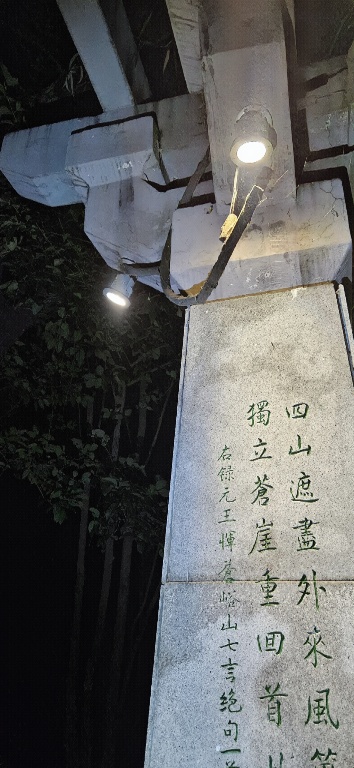 四山遮盡外來風
獨立蒼崖重回首
右録元王惲蒼峪山七言絶句一